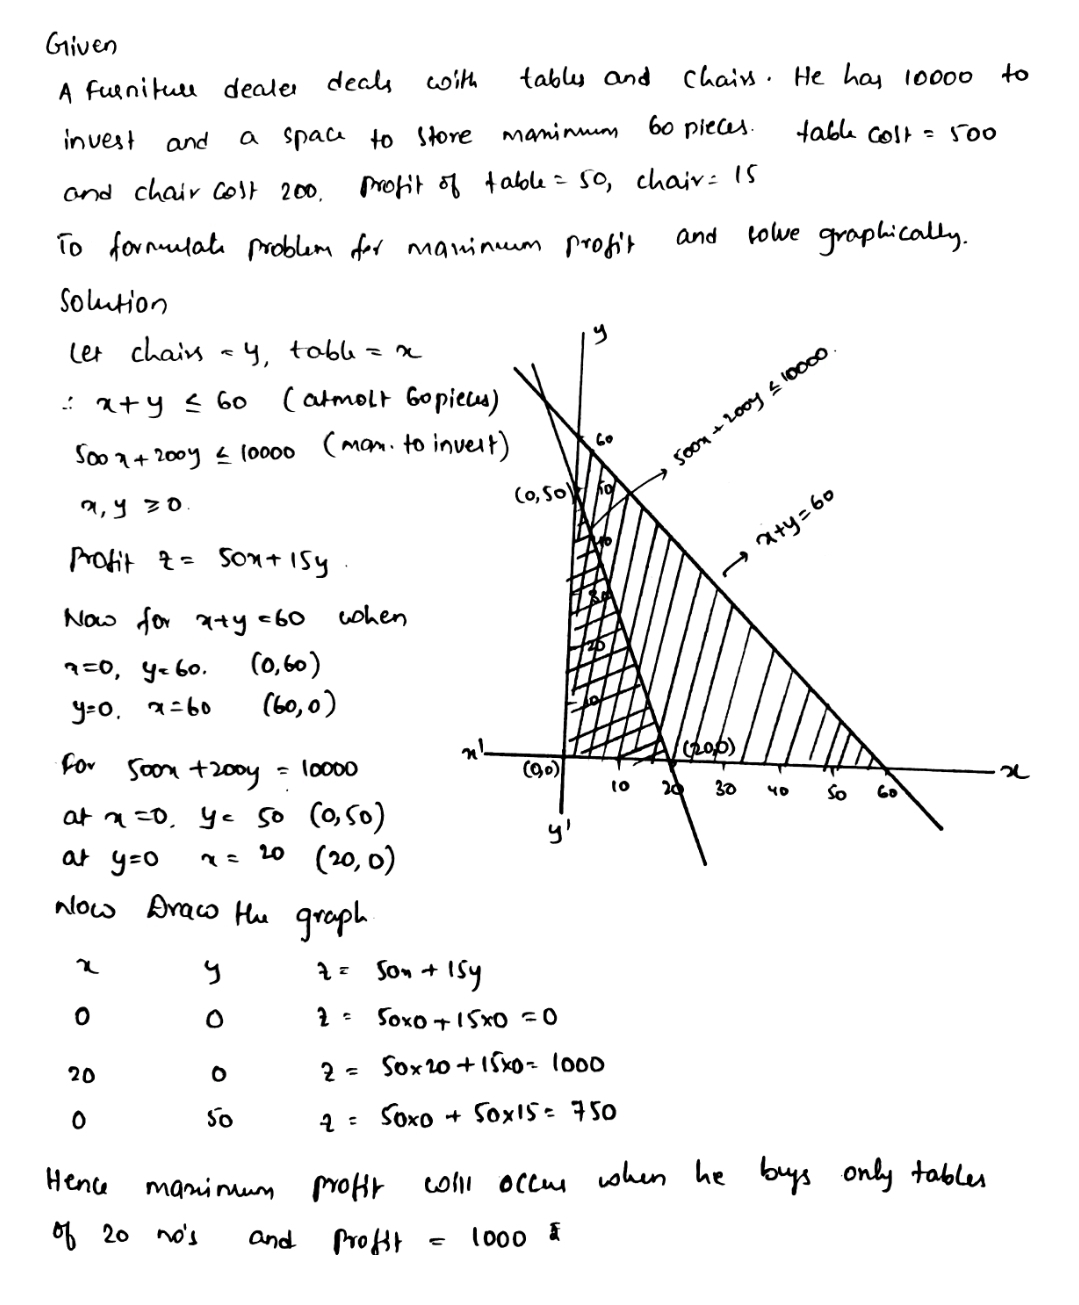 Given
A furniture dealer deals with tables and chairs. He has 10000 to
invest and a space to store maximum 60 pieces. table cost = 500
and chair cost 200. Profit of table = 50, chair = 15
To formulate problem for maximum profit and solve graphically.
Solution
Let chairs = y, table = x
∴ x+y ≤ 60 (atmost 60 pieces)
500x + 200y ≤ 10000 (max. to invest)
x, y ≥ 0.
Profit z = 50x + 15y.
Now for x+y = 60 when
x=0, y=60. (0,60)
y=0, x=60 (60,0)
for 500x + 200y = 10000
at x=0, y = 50 (0,50)
at y=0 x = 20 (20,0)
Now Draw the graph
y
500x + 200y ≤ 10000.
60
(0,50)
50
x+y=60
40
30
20
10
x'
(0,0)
(20,0)
x
10 20 30 40 50 60
y'
x y z = 50x + 15y
0 0 z = 50x0 + 15x0 = 0
20 0 z = 50x20 + 15x0 = 1000
0 50 z = 50x0 + 50x15 = 750
Hence maximum profit will occur when he buys only tables
of 20 no's and profit = 1000